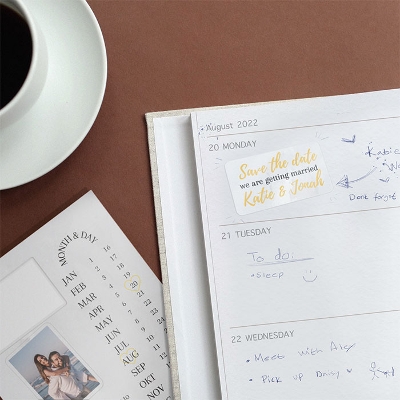 August 2022
20 MONDAY
Save the date
we are getting married
Katie & Jonah
Katie
Dont forget
21 TUESDAY
To do:
•Sleep
22 WEDNESDAY
• Meet with Alex
• Pick up Dany
MONTH & DAY
JAN
FEB
MAR
APR
MAY
JUN
JUL
AUG
SEP
OCT
NOV
1
2
3
4
5
6
7
8
9
10
11
12
13
14
15
16
17
18
19
20
21
22
23
24
25
26
27